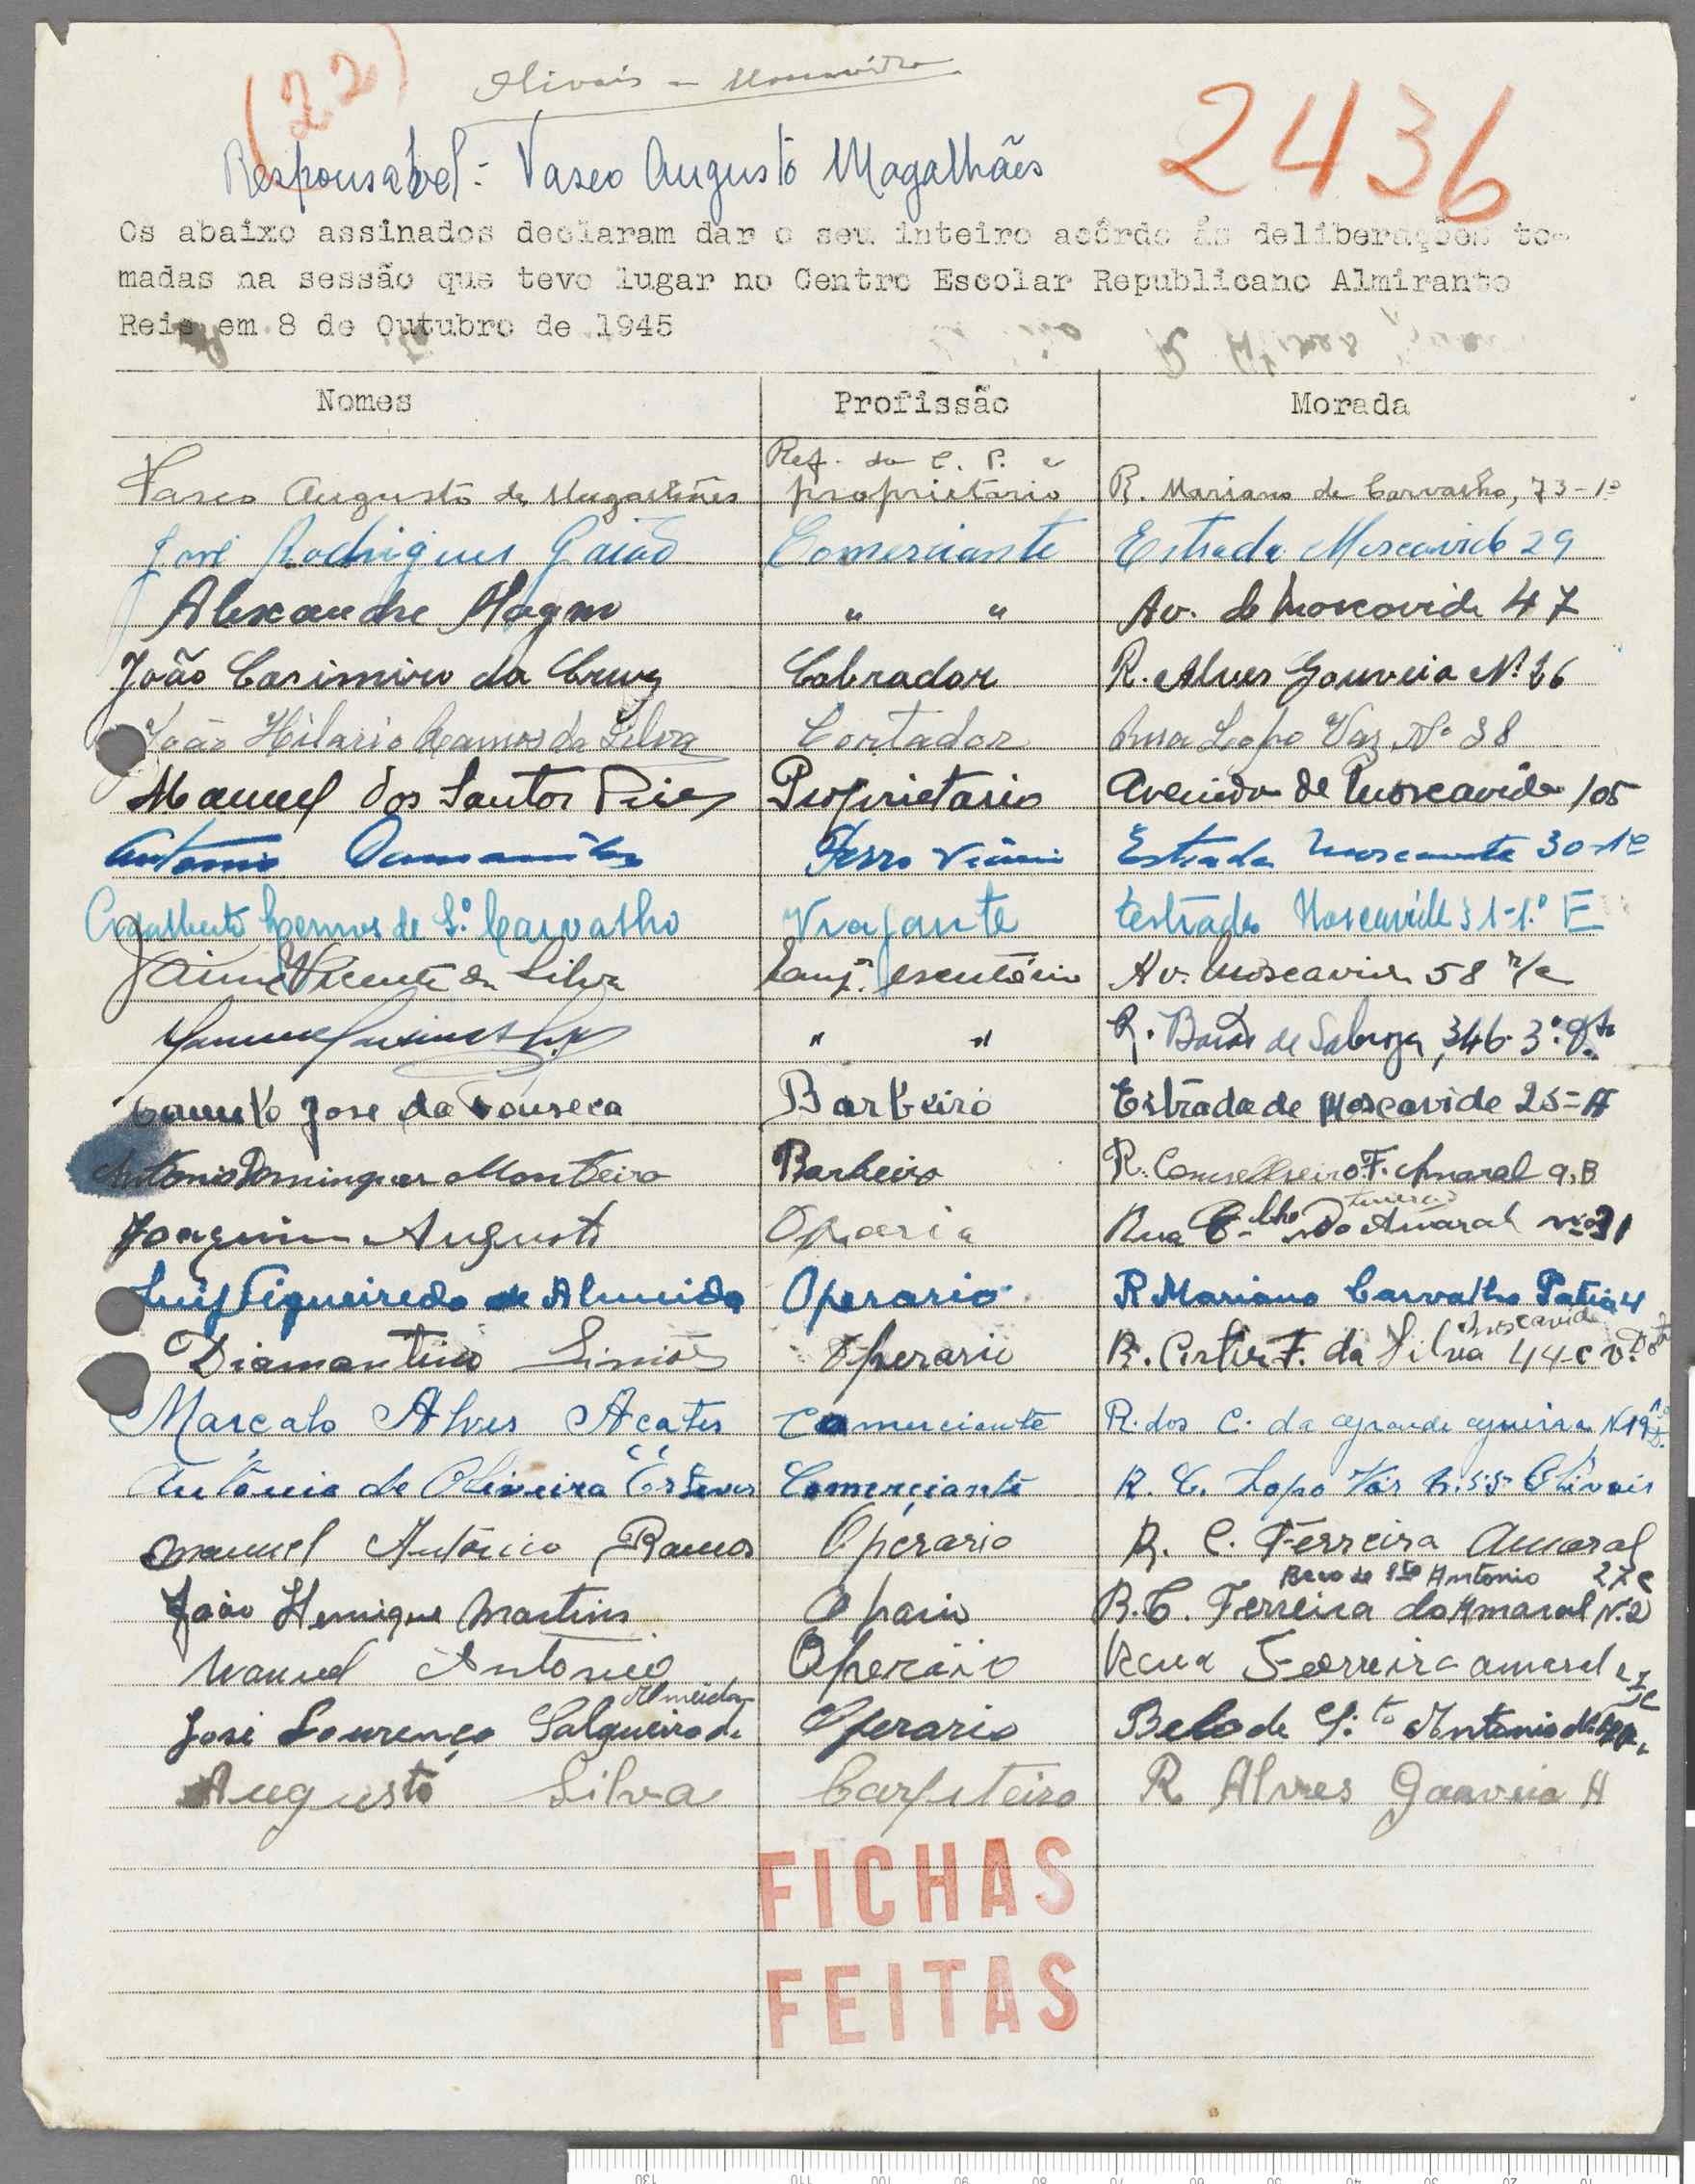 (22)
Olivais - Moscavide
2436
Responsabel: Vasco Augusto Magalhães
Os abaixo assinados declaram dar o seu inteiro acôrdo ás deliberações to-
madas na sessão que teve lugar no Centro Escolar Republicano Almirante
Reis em 8 de Outubro de 1945
Nomes Profissão Morada
Vasco Augusto de Magalhães Ref. da C. P. e proprietario R. Mariano de Carvalho, 73-1º
José Rodrigues Gaião Comerciante Estrada Moscavide 29
Alexandre Magno " " Av. de Moscavide 47
João Casimiro da Cruz Cobrador R. Alves Gouveia Nº 26
João Hilario Ramos da Silva Cortador Rua Lopo Vaz Nº 38
Manuel dos Santos Pires Proprietario Avenida de Moscavide 105
Antonio Ferro Viário Estrada Moscavide 30-1º
de S. Carvalho Viajante Estrada Moscavide 31-1.º E
Jaime Vicente da Silva escritório Av. Moscavide 58 r/c
" " R. Barão de Sabroza, 346-3º. Dto
José da Fonseca Barbeiro Estrada de Moscavide 25-A
Antonio Domingues Monteiro Barbeiro R. Conselheiro F. Amaral 9, B
Joaquim Augusto Oparia Rua C-lho Do Amaral nº 31
Luiz Figueiredo de Almeida Operario R Mariano Carvalho Patia 4
Diamantino Simões Operario R. Artur F. da Silva 44-c v. Moscavide
Marçalo Alves Acates Comerciante R. dos C. da Grande Guerra N 19
António de Oliveira Esteves Comerciante R. C. Lopo Vás N. 55 Olivais
Manuel António Ramos Operario R. C. Ferreira Amaral
Beco de Sto Antonio 27 c
João Henrique Martins Opario R. C. Ferreira do Amaral N. 2
Manuel Antonio Operáio Rua Ferreira amaral
José Lourenço Salgueiro de Almeida Operario Beco de S.to Antonio
Augusto Silva Carpiteiro R Alvres Gouveia A
FICHAS
FEITAS